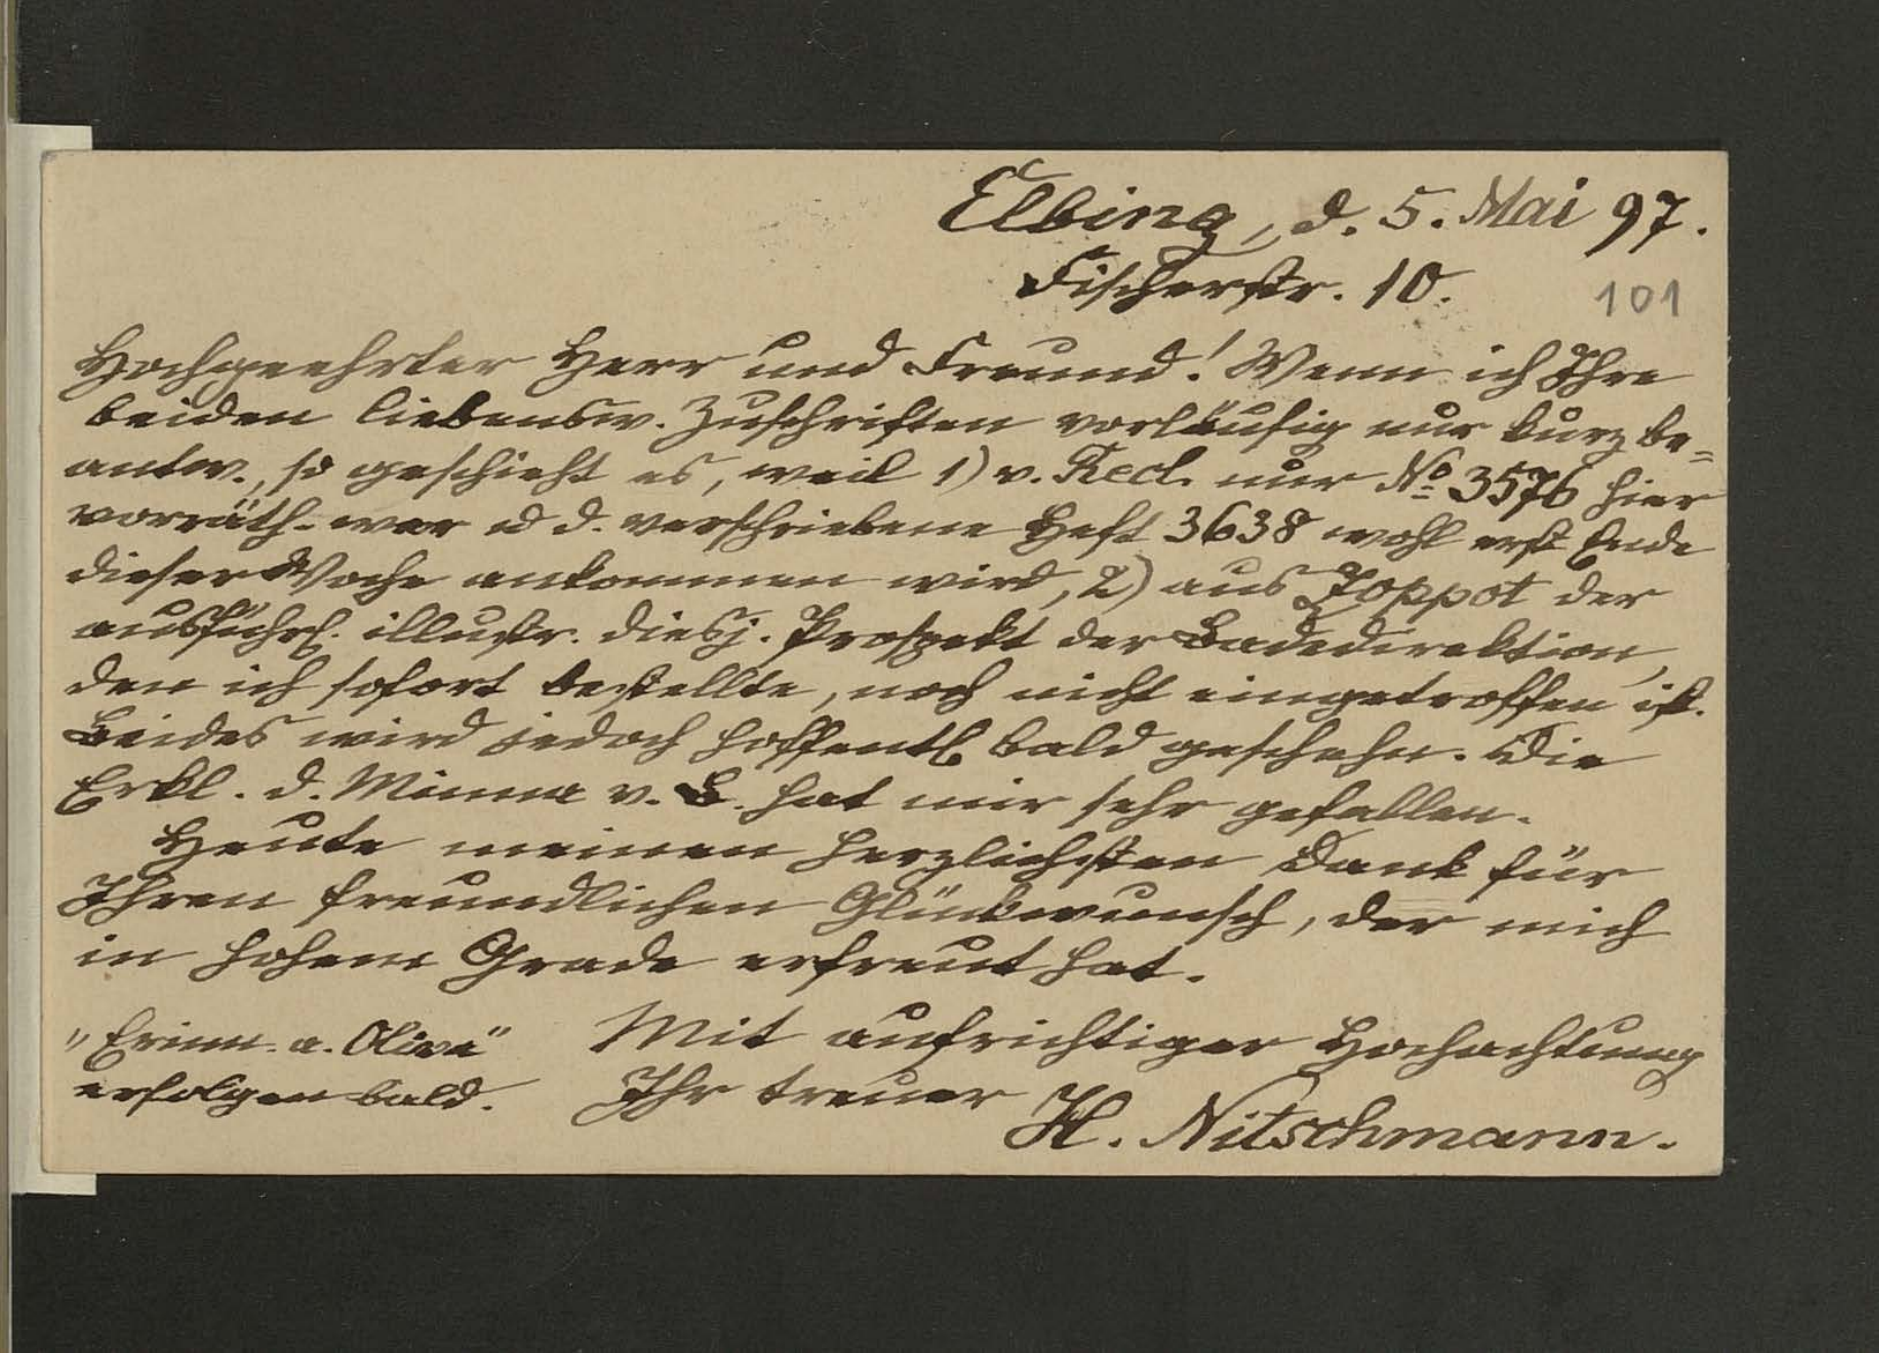 Elbing, d. 5. Mai 97.
Fischerstr. 10.
101
Hochgeehrter Herr und Freund! Wenn ich Ihre
beiden liebensw. Zuschriften vorläufig nur kurz be=
antw., so geschieht es, weil 1) v. Recl. nur No 3576 hier
vorräth. war u d. verschriebene Heft 3638 wohl erst Ende
dieser Woche ankommen wird, 2) aus Zoppot der
ausführl. illustr. diesj. Prospekt der Badedirektion,
den ich sofort bestellte, noch nicht eingetroffen ist.
Beides wird jedoch hoffentl bald geschehn. Die
Erkl. d. Minna v. B. hat mir sehr gefallen.
Heute meinen herzlichsten Dank für
Ihren freundlichen Glückwunsch, der mich
in hohem Grade erfreut hat.
"Erinn. a. Oliva"
erfolgen bald.
Mit aufrichtiger Hochachtung
Ihr treuer
H. Nitschmann.